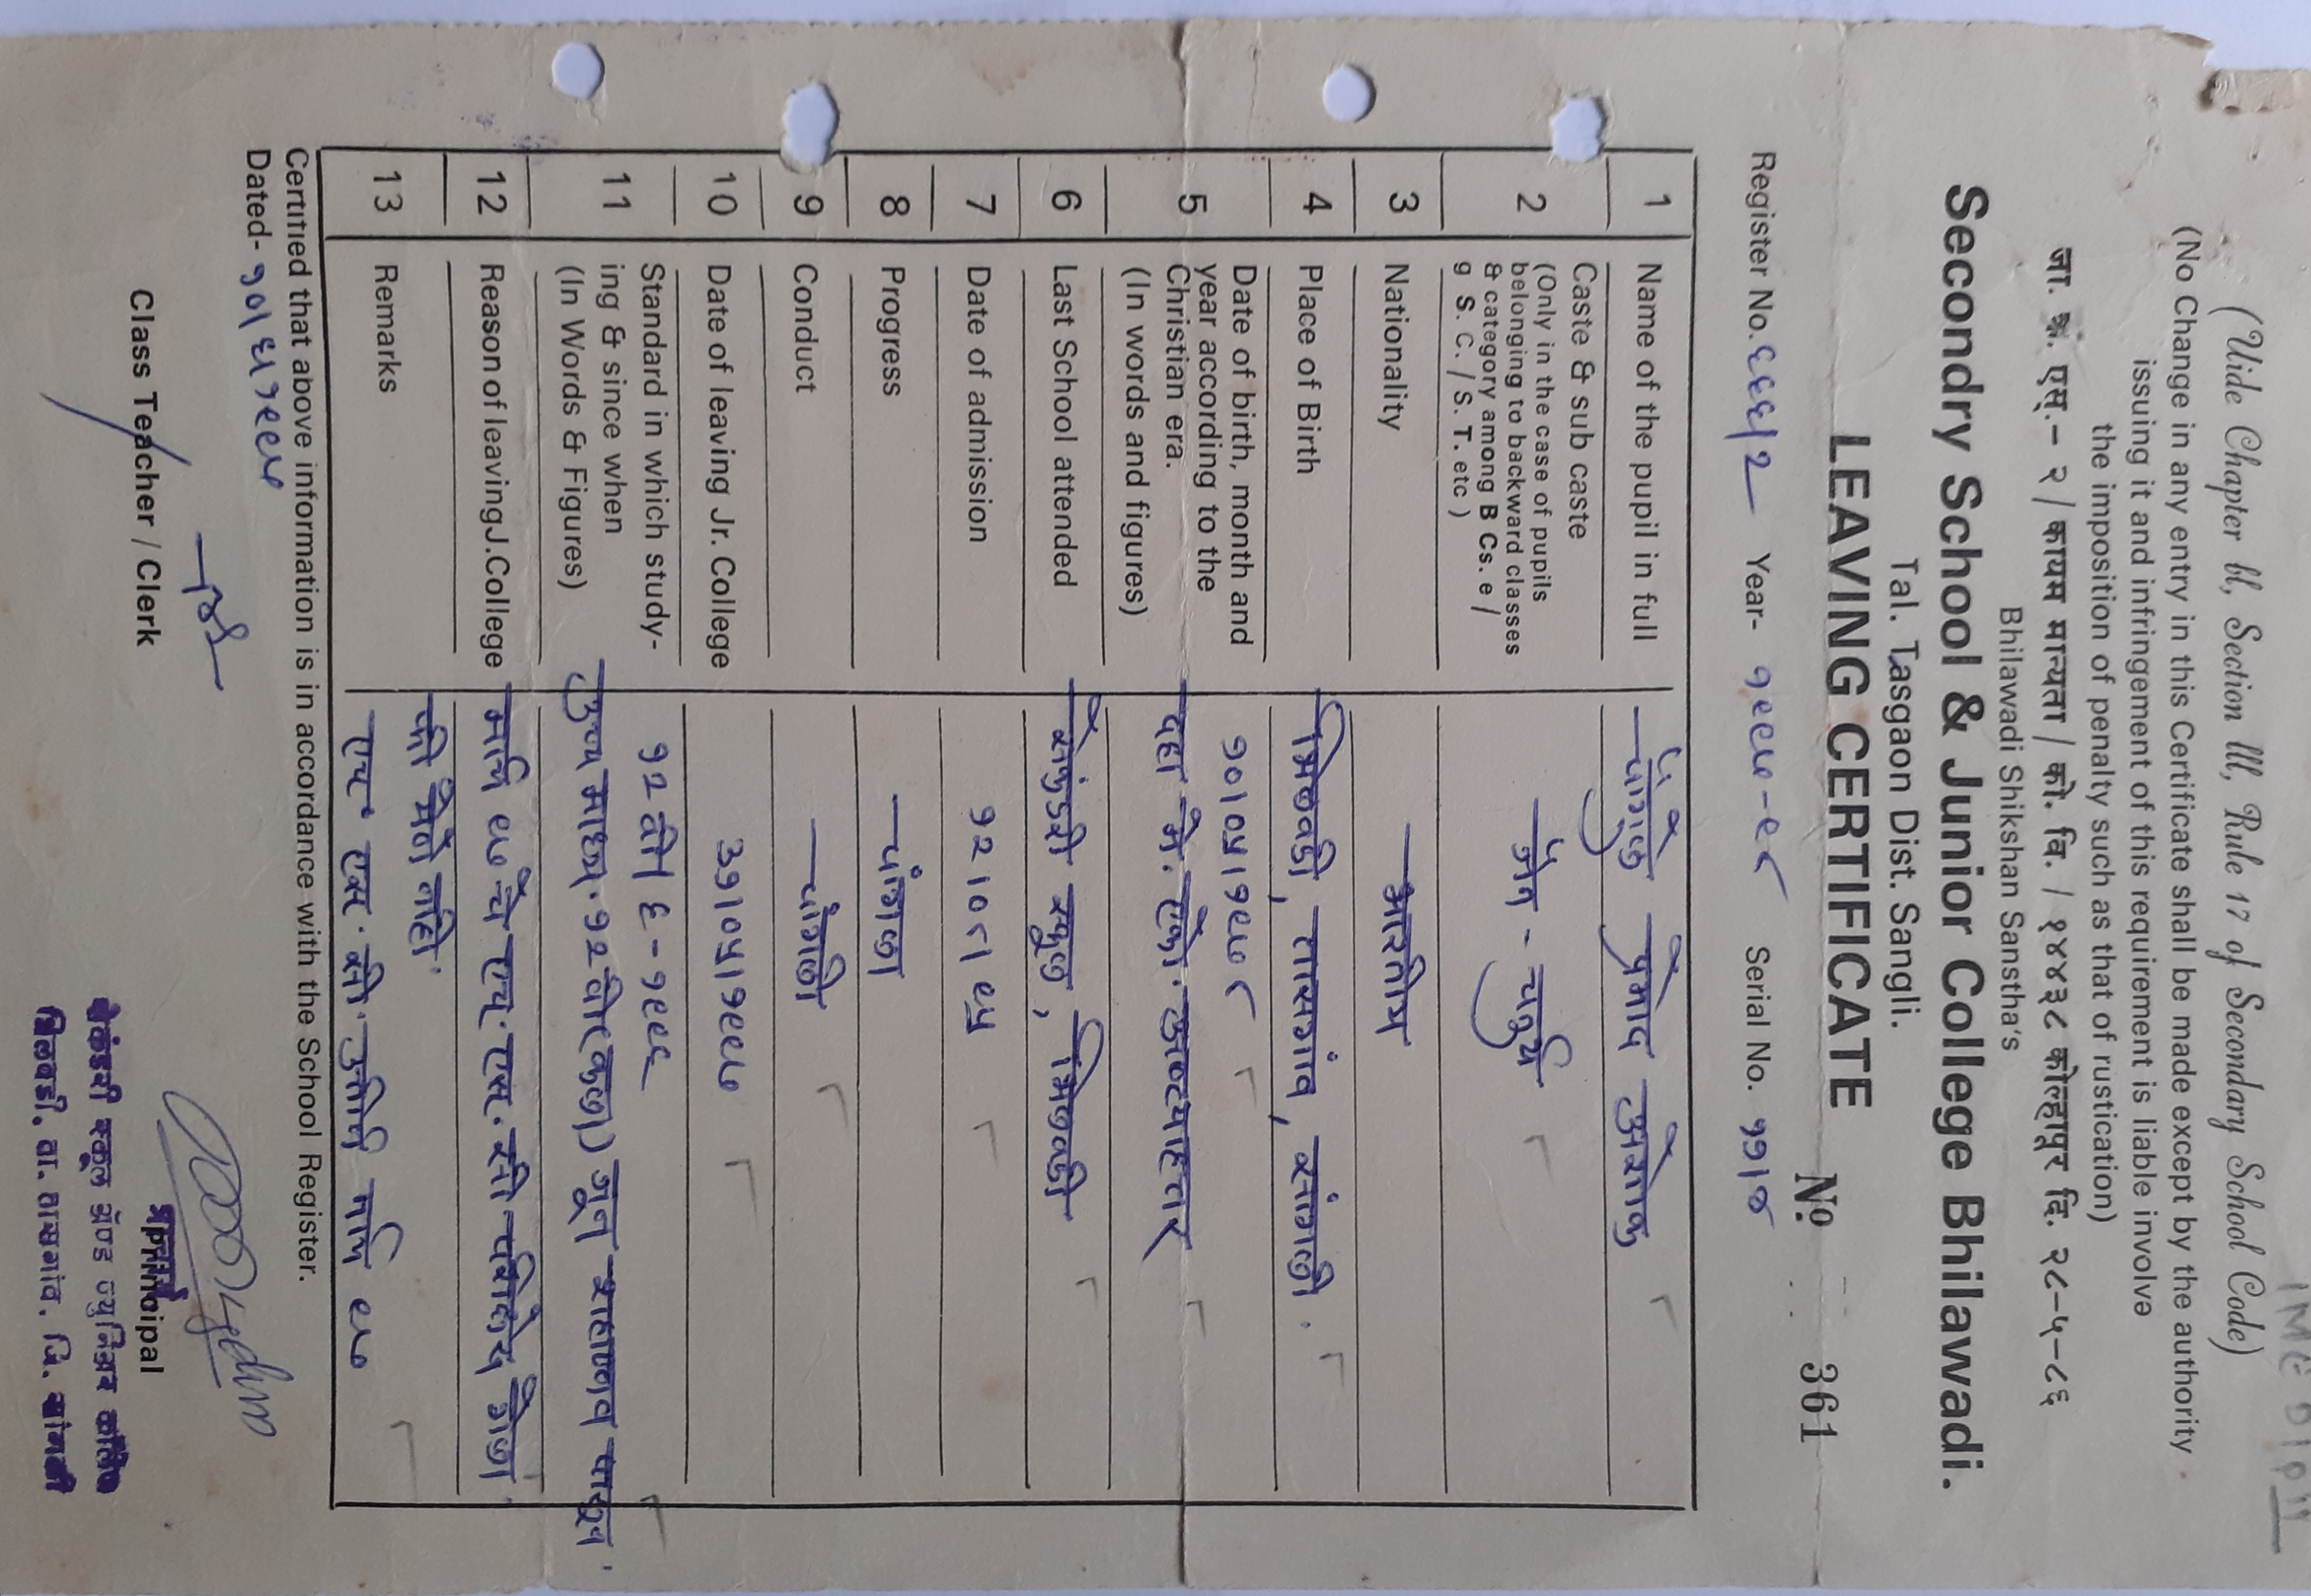 (Uide Chapter bl, Section lll, Rule 17 of Secondary School Code)
(No Change in any entry in this Certificate shall be made except by the authority
issuing it and infringement of this requirement is liable involve
the imposition of penalty such as that of rustication)
जा. क्रं. एस्.– २ / कायम मान्यता / को. वि. / १४४३८ कोल्हापूर दि. २८–५–८६
Bhilawadi Shikshan Sanstha's
Secondry School & Junior College Bhilawadi.
Tal. Tasgaon Dist. Sangli.
LEAVING CERTIFICATE
Nº 361
Register No. ६६६/2 Year- १९९७-९८ Serial No.
1 Name of the pupil in full प्रमोद अशोक
2 Caste & sub caste
(Only in the case of pupils
belonging to backward classes
& category among B Cs. e /
g S. C. / S. T. etc )
जैन - चतुर्थ
3 Nationality भारतीय
4 Place of Birth भिलवडी, तासगांव, सांगली.
5 Date of birth, month and
year according to the
Christian era.
(In words and figures)
१०/०५/१९७८
दहा मे. एको. अठ्याहत्तर
6 Last School attended सेकंडरी स्कूल, भिलवडी
7 Date of admission १२/०८/९५
8 Progress चांगला
9 Conduct चांगली
10 Date of leaving Jr. College ३१/०५/१९९७
11 Standard in which study-
ing & since when
(In Words & Figures)
१२ वी / ६-१९९६
उच्च माध्य. १२ वी (कला) जून शहाण्णव पासून.
12 Reason of leavingJ.College मार्च ९७ चे एच. एस. सी परिक्षेस गेला
की येते नाही.
13 Remarks एच एस. सी. उत्तीर्ण मार्च ९७
Certified that above information is in accordance with the School Register.
Dated- १०/६/१९९७
Class Teacher / Clerk
Principal
सेकंडरी स्कूल अँण्ड ज्युनिअर कॉलेज
भिलवडी, ता. तासगांव, जि. सांगली